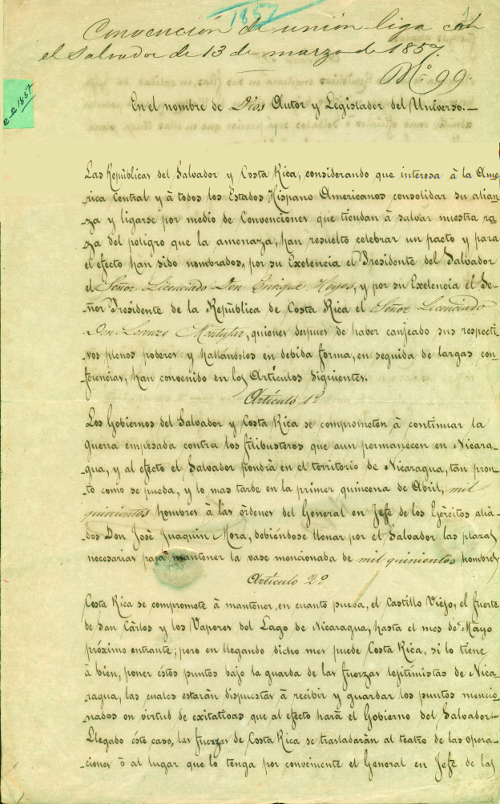 1857
1
Convención de unión liga con
el Salvador de 13 de marzo de 1857
Nº 99.
c-e 1857
En el nombre de Dios Autor y Legislador del Universo.
Las Repúblicas del Salvador y Costa Rica, considerando que interesa à la Ame-
rica Central y à todos los Estados Hispano Americanos consolidar su alian-
za y ligarse por medio de Convenciones que tiendan à salvar nuestra ra-
za del peligro que la amenaza, han resuelto celebrar un pacto y para
el efecto han sido nombrados, por su Exelencia el Presidente del Salvador
el Señor Licenciado Don Enrique Hoyos, y por su Exelencia el Se-
ñor Presidente de la República de Costa Rica el Señor Licenciado
Don Lorenzo Montufar, quienes despues de haber canjeado sus respecti-
vos plenos poderes y hallándolos en debida forma, en seguida de largas con-
ferencias, han convenido en los Artículos siguientes.
Artículo 1º
Los Gobiernos del Salvador y Costa Rica se comprometen à continuar la
guerra empesada contra los filibusteros que aun permanecen en Nicara-
gua, y al efecto el Salvador pondrá en el territorio de Nicaragua, tan pron-
to como se pueda, y lo mas tarde en la primer quincena de Abril, mil
quinientos hombres à las órdenes del General en Jefe de los Ejércitos alia-
dos Don José Joaquin Mora, debiéndose llenar por el Salvador las plazas
necesarias para mantener la vase mencionada de mil quinientos hombres
Artículo 2º
Costa Rica se compromete à mantener, en cuanto pueda, el Castillo Viejo, el fuerte
de San Cárlos y los Vapores del Lago de Nicaragua, hasta el mes de Mayo
próximo entrante; pero en llegando dicho mes puede Costa Rica, si lo tiene
à bien, poner éstos puntos bajo la guarda de las fuerzas lejitimistas de Nica-
ragua, las cuales estarán dispuestas à recibir y guardar los puntos mencio-
nados en virtud de exitativas que al efecto hará el Gobierno del Salvador.
Llegado éste caso, las fuerzas de Costa Rica se trasladarán al teatro de las opera-
ciones ò al lugar que lo tenga por conveniente el General en Jefe de las